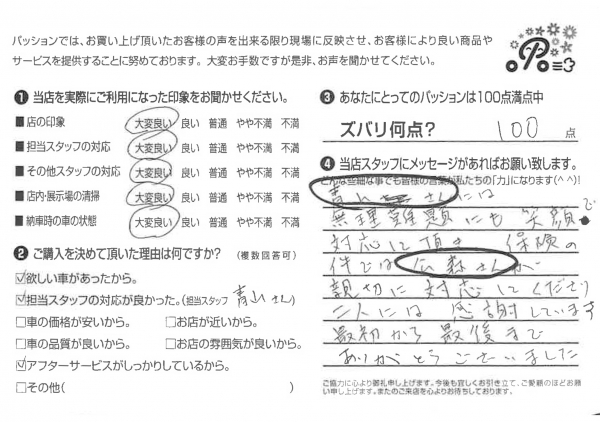 パッションでは、お買い上げ頂いたお客様の声を出来る限り現場に反映させ、お客様により良い商品や
サービスを提供することに努めております。大変お手数ですが是非、お声を聞かせてください。
❶ 当店を実際にご利用になった印象をお聞かせください。
■ 店の印象 大変良い 良い 普通 やや不満 不満
■ 担当スタッフの対応 大変良い 良い 普通 やや不満 不満
■ その他スタッフの対応 大変良い 良い 普通 やや不満 不満
■ 店内・展示場の清掃 大変良い 良い 普通 やや不満 不満
■ 納車時の車の状態 大変良い 良い 普通 やや不満 不満
❷ ご購入を決めて頂いた理由は何ですか？ (複数回答可)
☑欲しい車があったから。
☑担当スタッフの対応が良かった。(担当スタッフ 青山さん)
□車の価格が安いから。 □お店が近いから。
□車の品質が良いから。 □お店の雰囲気が良いから。
☑アフターサービスがしっかりしているから。
□その他( )
❸ あなたにとってのパッションは100点満点中
ズバリ何点？ 100 点
❹ 当店スタッフにメッセージがあればお願い致します。
どんな些細な事でも皆様の言葉が私たちの「力」になります(^^)!
青山 さんには
無理難題にも笑顔で
対応して頂き 保険の
件では広森さんが
親切に対応してくださり
二人には感謝しています
最初から最後まで
ありがとうございました
ご協力に心より御礼申し上げます。今後も宜しくお引き立て、ご愛顧のほどお願
い申し上げます。またのご来店を心よりお待ちしております。